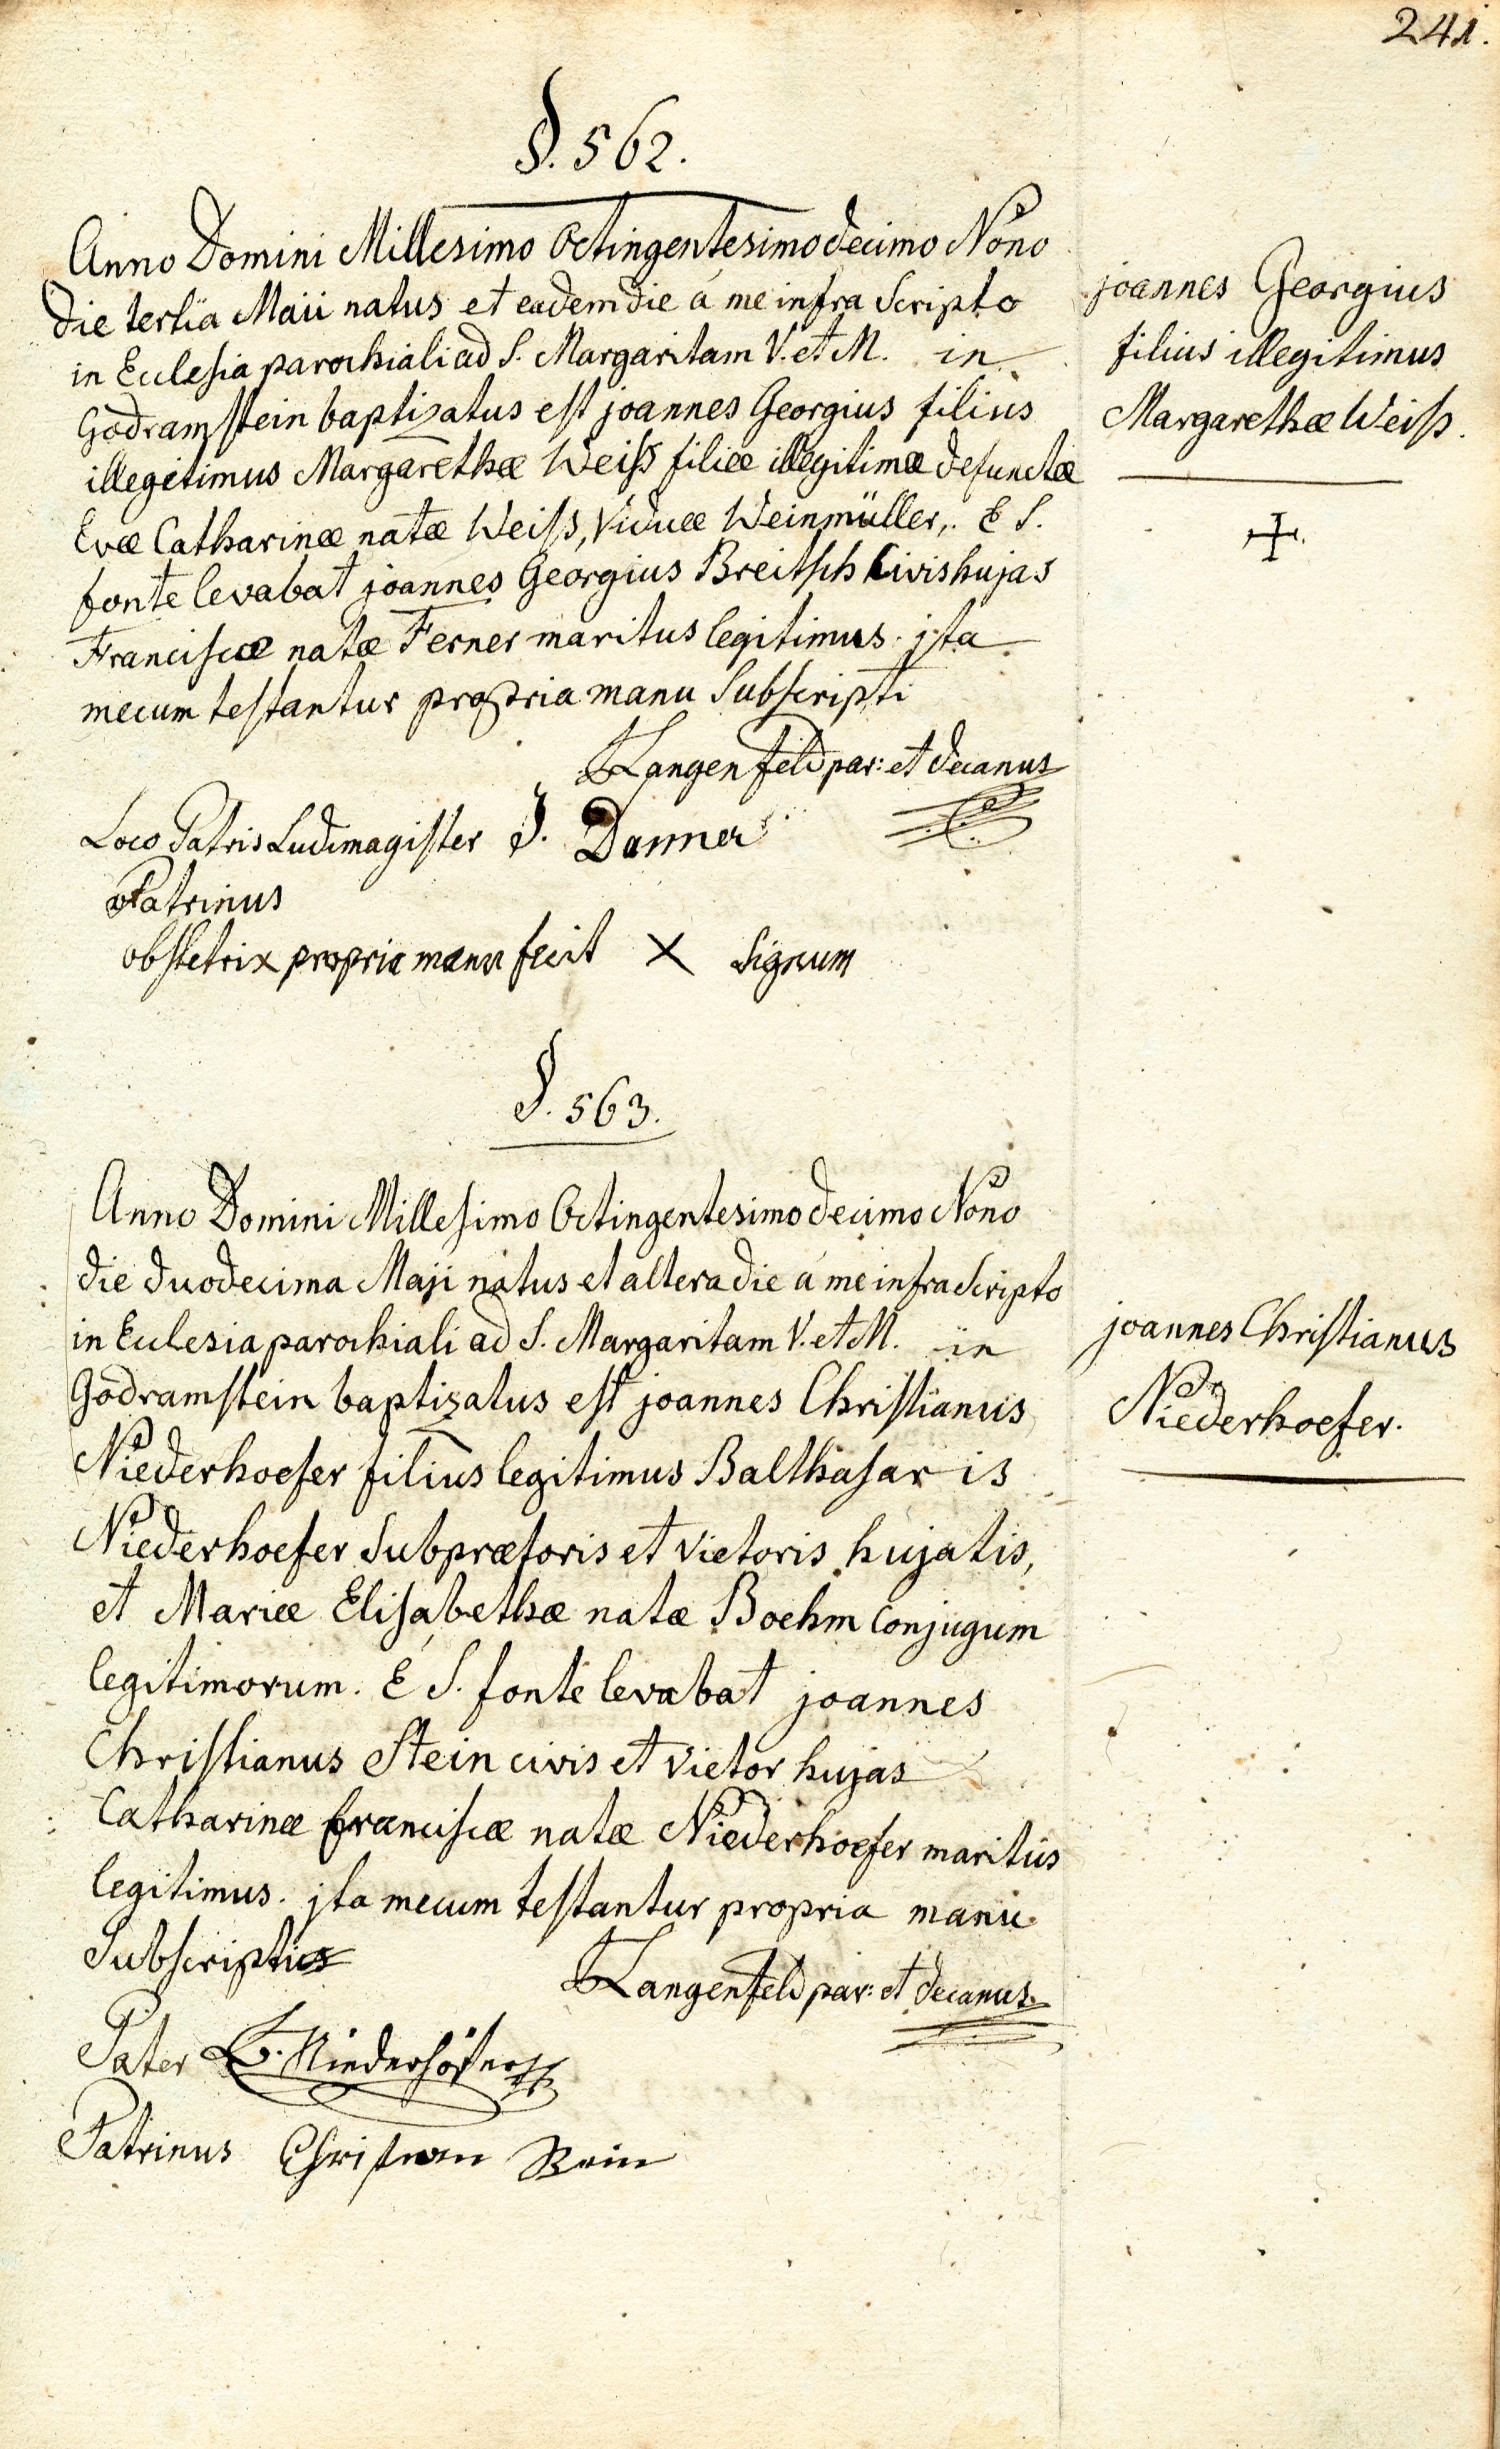 241.
§. 562.
Anno Domini Millesimo Octingentesimo decimo Nono
die tertia Maii natus et eadem die á me infra Scripto
in Ecclesia parochiali ad S. Margaritam V. et M. in
Godramstein baptizatus est joannes Georgius filius
illegitimus Margarethæ Weiss filiæ illegitimæ defunctæ
Evæ Catharinæ natæ Weiss, Viduæ Weinmüller,. E S.
fonte levabat joannes Georgius Breitsch Civis hujas
Franciscæ natæ Ferner maritus legitimus. jta
mecum testantur propria manu Subscripti
Langenfeld par: et decanus
Loco Patris Ludimagister J. Danner
Patrinus
obstetrix propria manu fecit X Signum
joannes Georgius
filius illegitimus
Margarethæ Weiss.
§. 563.
Anno Domini Millesimo Octingentesimo decimo Nono
die duodecima Maji natus et altera die á me infra Scripto
in Ecclesia parochiali ad S. Margaritam V. et M. in
Godramstein baptizatus est joannes Christianus
Niederhoefer filius legitimus Balthasaris
Niederhoefer Subprætoris et vietoris hujatis,
et Mariæ Elisabethæ natæ Boehm Conjugum
legitimorum. É S. fonte levabat joannes
Christianus Stein civis et vietor hujas
Catharinæ franciscæ natæ Niederhoefer maritus
legitimus. jta mecum testantur propria manu
Subscripti
Langenfeld par: et decanus.
Pater B. Niederhöfer
Patrinus Christian Stein
joannes Christianus
Niederhoefer.